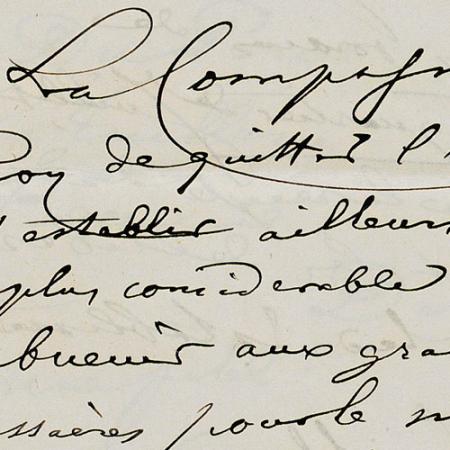 La Compagn
Roy de quitter l
s'establir ailleurs
plus considerable
aux gra
ssaires pour le